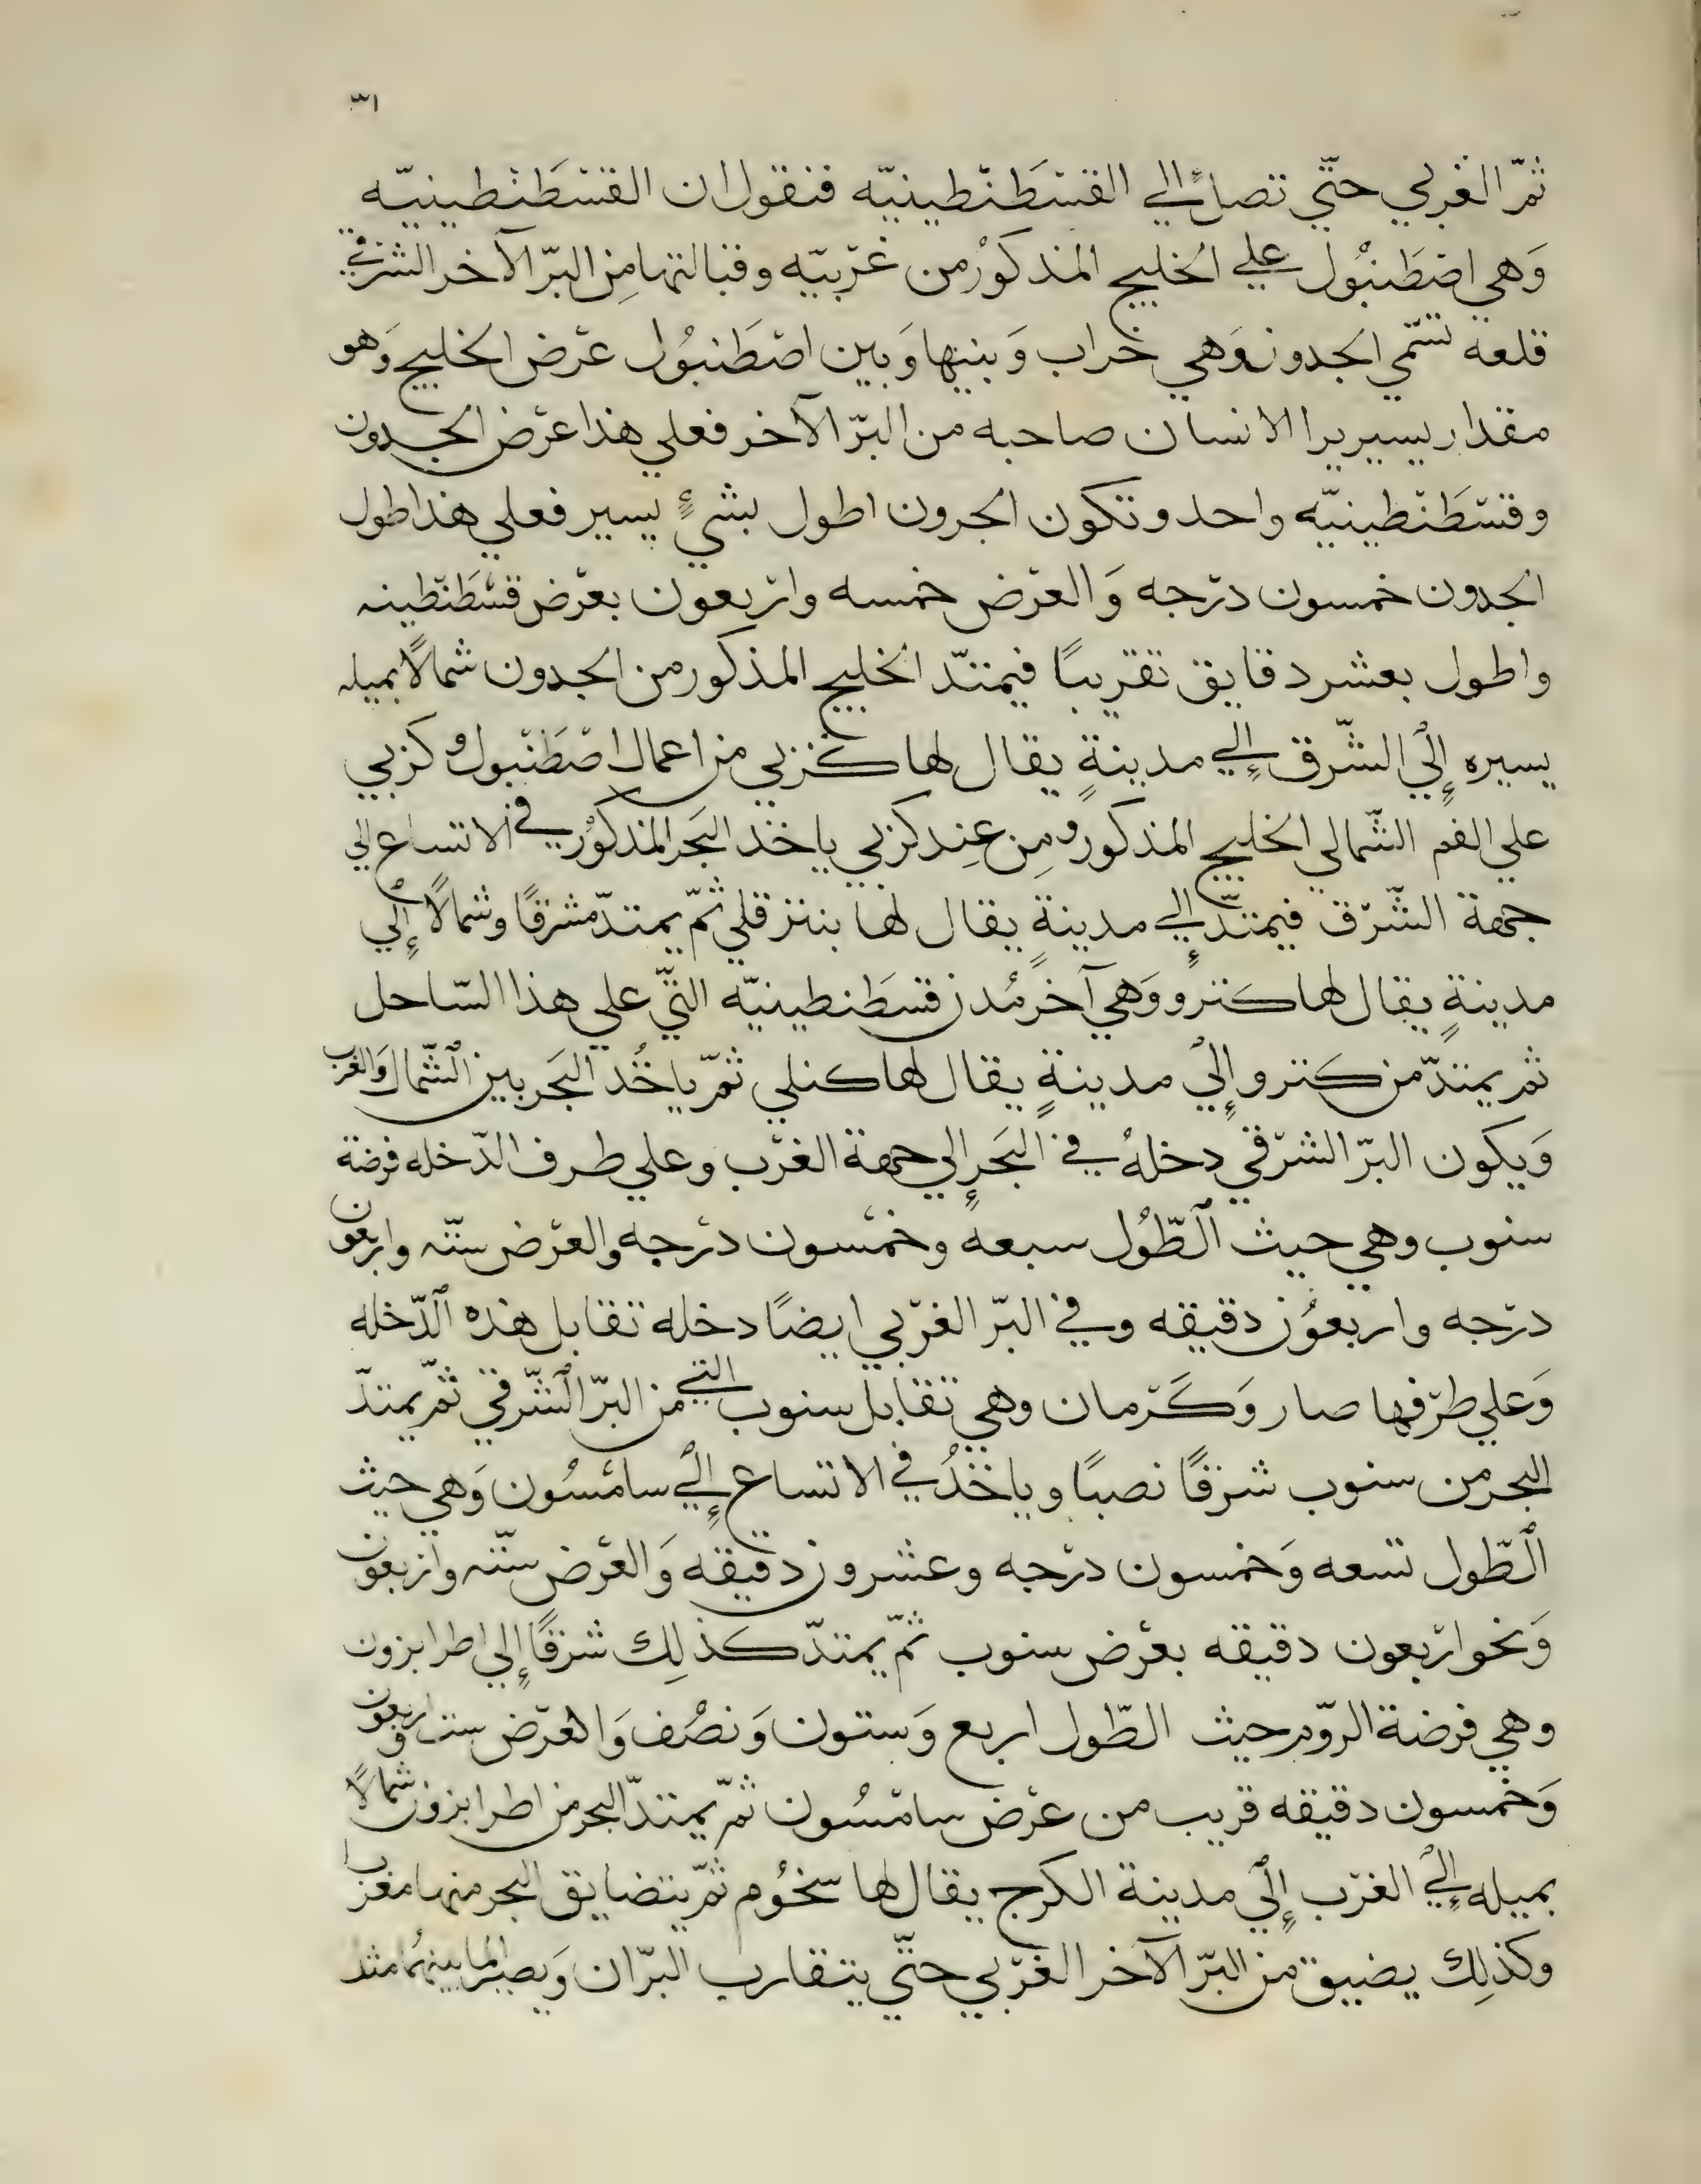 ٣١
ثمّ الغربي حتّي تصل الي القسْطَنْطينيّه فنقول ان القسْطَنْطينيّه
وَهي اصْطَنبُول علي الخليج المذكوُر من غرْبيّه وقبالتها مِن البرّ الآخر الشرقي
قلعه تسّمي الجدون وَهي خراب وَبينها وَبين اصْطَنبُول عرْض الخليج وَهو
مقدار يسير يرا الانسان صاحبه من البرّ الآخر فعلي هذا عرْض الجدون
وقسْطَنْطينيّه واحد وتكون الجرون اطول بشيءٍ يسير فعلي هذا طول
الجدون خمسون درْجه وَالعرْض خمسه وارْبعون بعرْض قسْطَنْطينه
واطول بعشر دقايق تقريبًا فيمتدّ الخليج المذكور من الجدون شمالًا بميله
يسيره إلي الشّرق إلي مدينةٍ يقال لها كزبي من اعمال اصْطَنْبول وكزبي
علي الفم الشّمالي الخليج المذكور ومِن عِند كزبي ياخذ البَحر المذكوُر في الاتساع الي
جهة الشّرْق فيمتدّ إلي مدينةٍ يقال لها بنترقلي ثمّ يمتدّ مشرقًا وشمالًا إلي
مدينةٍ يقال لها كترو وَهي آخر مُدن قسطَنطينيّه التّي علي هذا السّاحل
ثم يمتدّ من كترو إلي مدينةٍ يقال لها كنلي ثمّ ياخُد البَحر بين الشّمال وَالغرب
وَيكون البرّ الشرْقي دخلهُ في البَحر إلي جهة الغرْب وعلي طرف الدّخله فرضة
سنوب وهي حيث الطّوُل سبعهً وخمْسون درْجه والعرْض ستّه واربعون
درْجه واربعوُن دقيقه وفي البرّ الغرْبي ايضًا دخله تقابل هذه الدّخله
وَعلي طرْفها صار وَكَرْمان وهي تقابل سنوب التي من البرّ الشّرقي ثمّ يمتدّ
البحر من سنوب شرْقًا نصبًا وياخذُ في الاتساع إلي سامْسُون وَهي حيث
الطّول تسعه وَخمسون درْجه وعشرون دقيقه وَالعرْض ستّه وارْبعون
وَنحو ارْبعون دقيقه بعرْض سنوب ثمّ يمتدّ كذلِك شرْقًا إلي اطرابزون
وهي فرضة الرّوم حيث الطّول اربع وَستون وَنصْف وَالعرْض ست واربعون
وَخمسون دقيقه قريب من عرْض سامْسُون ثمّ يمتدّ البحر من اطرابزون شمالًا
بميله إلي الغرْب إلي مدينة الكرج يقال لها سخوُم ثمّ يتضايق البحر منها مغربا
وكذلِك يضيق من البرّ الآخر الغرْبي حتّي يتقارب البرّان وَيصير الما بينهُما مثل